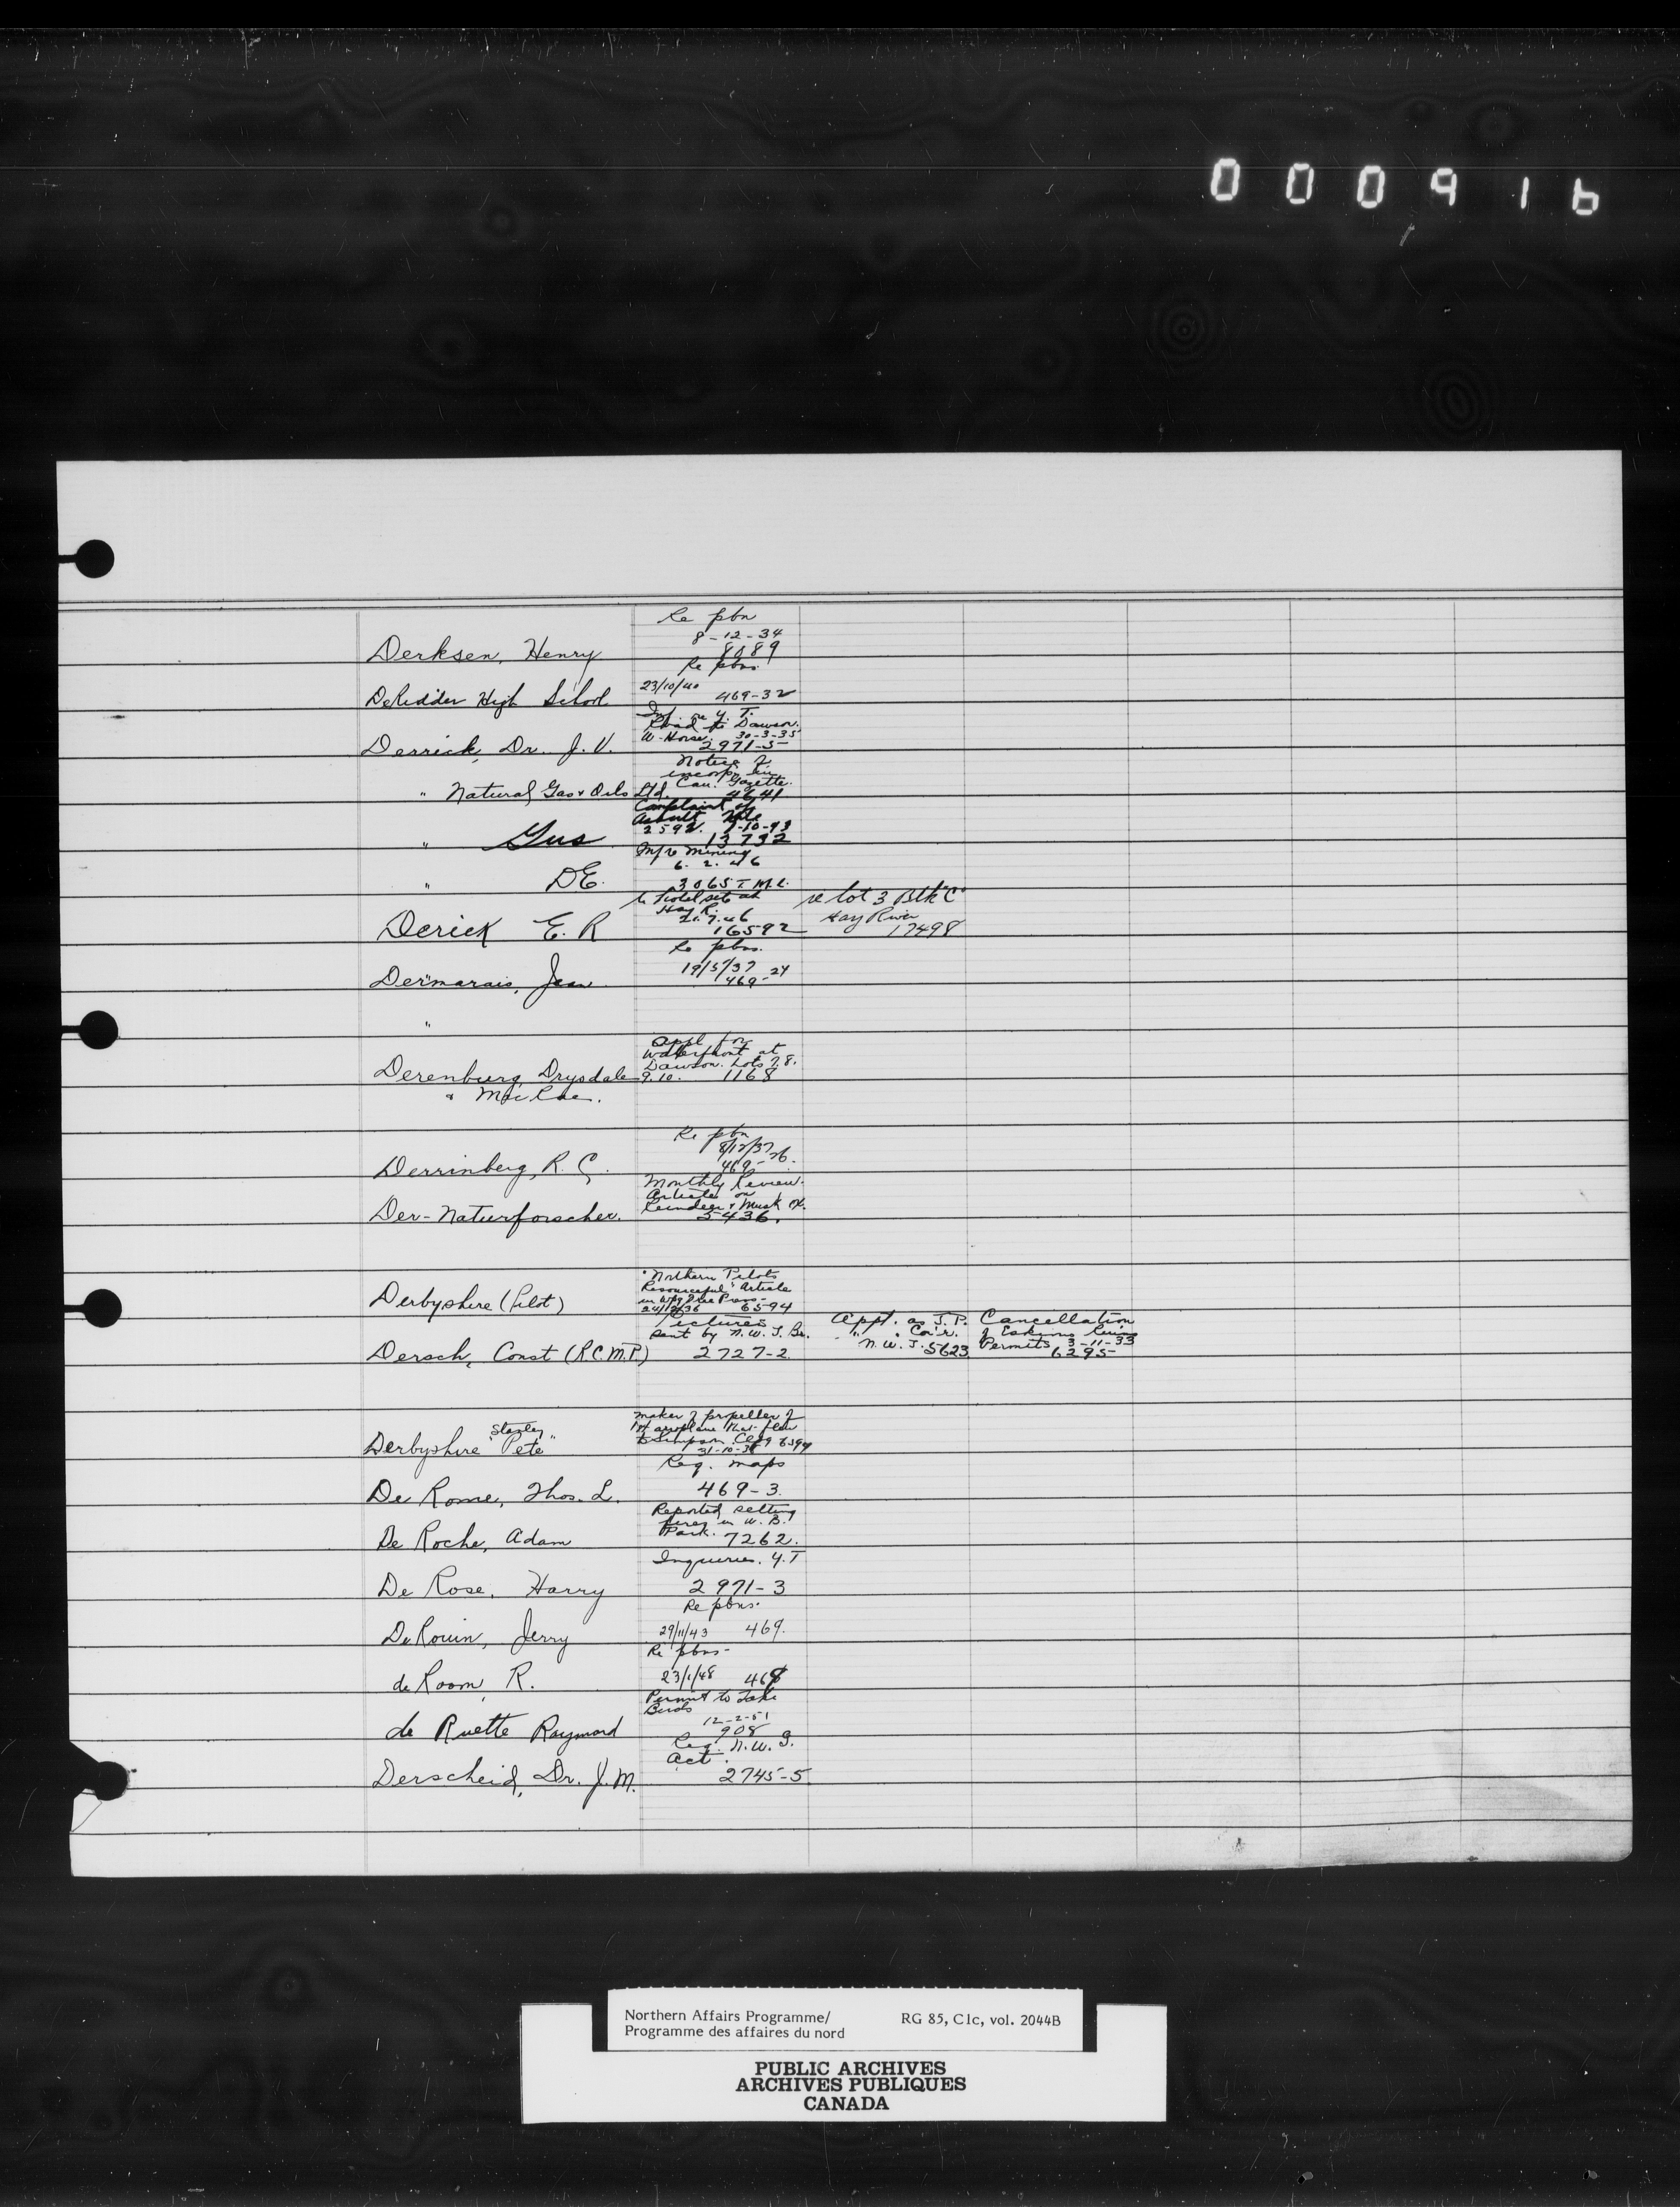 000916
Re pbn
8-12-34
Derksen, Henry 8089
Re pbns.
23/10/40
DeRidder High School 469-32
Inf. re Y. T.
Road to Dawson.
W-Horse. 30-3-35
Derrick, Dr. J. V. 2971-5
Notice of
incorp. in
Can. Gazette.
" Natural Gas & Oils Ltd. 4641
Complaint of
Assault
2592. 7-10-43
" Gus 13732
M/re Mining
6. 2. 46
" DE. 3065 T M.C.
to Hotel site at
Hay R.
21.7.46
Derick E. R 16592
re lot 3 Blk "C"
Hay River
17498
Re pbns.
19/5/37
Dermarais, Jean 469-24
"
Appl for
Waterfront at
Dawson. Lots 7.8.
Derenburg, Drysdale 9.10. 1168
& MacRae.
Re pbn
8/12/37
Derrinberg, R. C. 469-26.
Monthly Review.
Article on
Reindeer & Musk Ox.
Der-Naturforscher. 5436.
"Northern Pilots
Resourceful" Article
in Wpg Free Press-
Derbyshire (Pilot) 24/12/36 6594
Pictures
sent by N. W. T. Br.
Dersch, Const (R.C.M.P.) 2727-2
Appt. as J. P.
" " Cor'r.
N. W. T. 5623
Cancellation
of Eskimo
Permits 3-11-33
6295
maker of propeller of
1st aeroplane that flew
to Simpson
Stanley
Derbyshire "Pete" 31-10-38 6594
Req. maps
De Rome, Thos. L. 469-3
Reported setting
fires in W. B.
Park.
De Roche, Adam 7262.
Inquiries. Y.T
De Rose, Harry 2971-3
Re pbns.
DeRouin, Jerry 29/11/43 469.
Re pbns-
de Room, R. 23/1/48 468
Permit to Take
Birds
12-2-51
de Ruette Raymond 908
Req. N. W. G.
Act.
Derscheid, Dr. J. M. 2745-5
Northern Affairs Programme/ RG 85, C1c, vol. 2044B
Programme des affaires du nord
PUBLIC ARCHIVES
ARCHIVES PUBLIQUES
CANADA